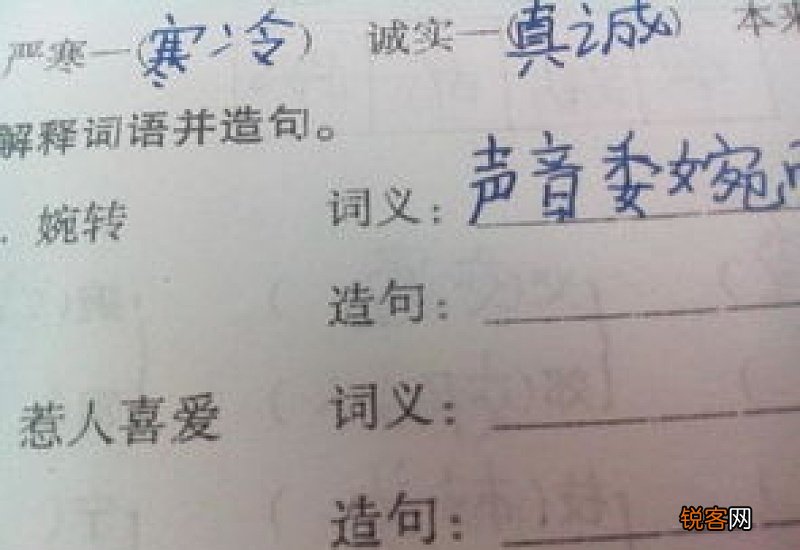 严寒—(寒冷) 诚实—(真诚) 本来
解释词语并造句。
. 婉转 词义：声音委婉
造句：
惹人喜爱 词义：
造句：
锐客网